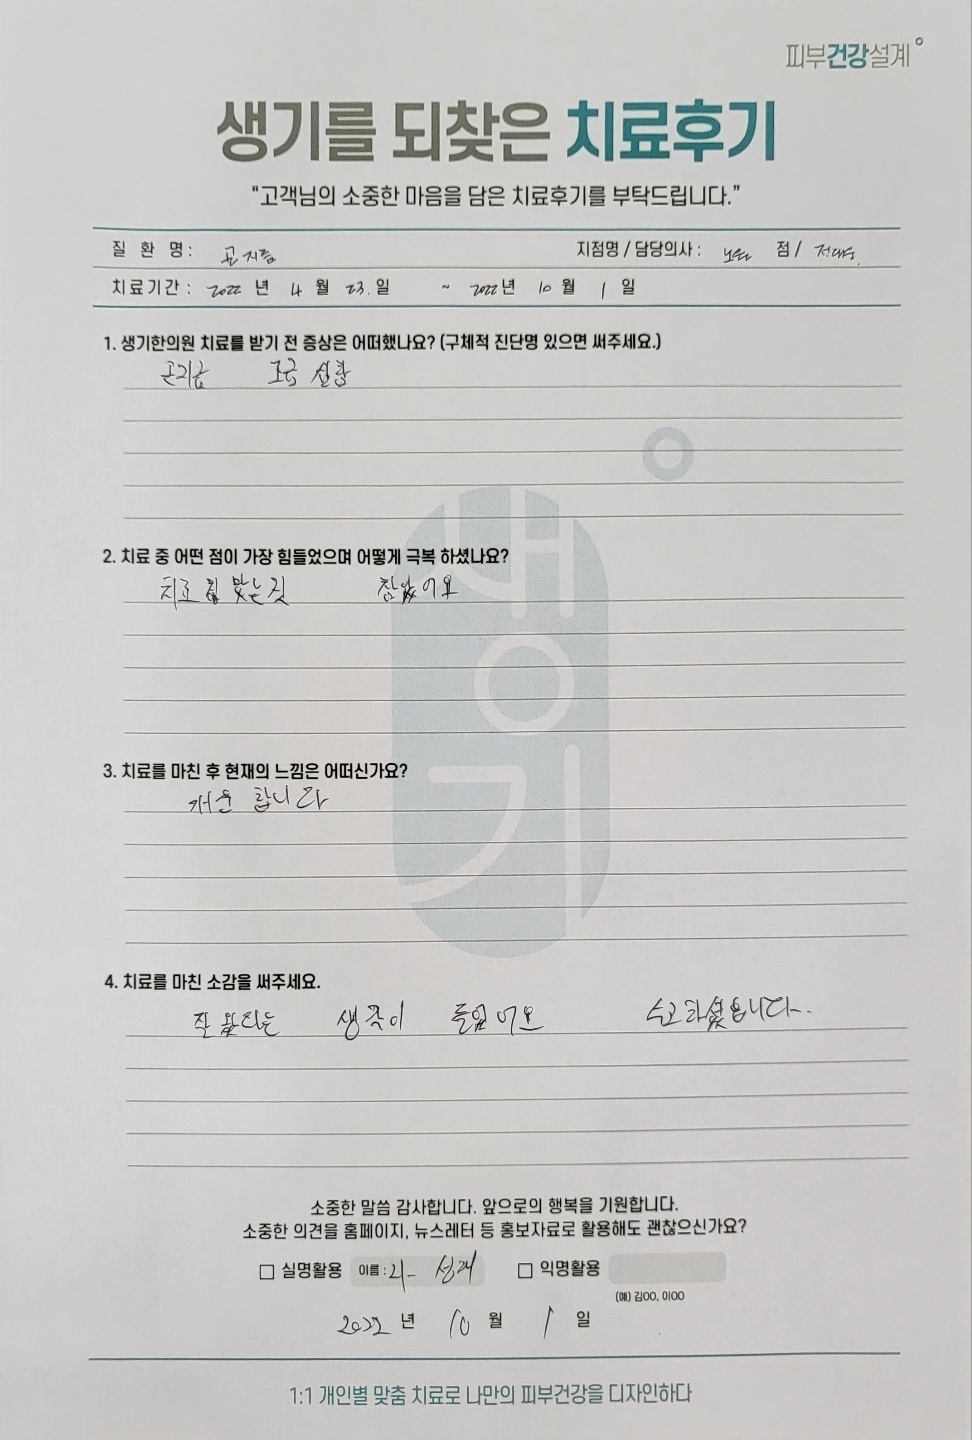 피부건강설계
생기를 되찾은 치료후기
“고객님의 소중한 마음을 담은 치료후기를 부탁드립니다.”
질 환 명 : 곤지름 지점명 / 담당의사 : 노원 점 /
치료기간 : 2022 년 4 월 23. 일 ~ 2022 년 10 월 1 일
1. 생기한의원 치료를 받기 전 증상은 어떠했나요? (구체적 진단명 있으면 써주세요.)
곤지름 조금 심함
2. 치료 중 어떤 점이 가장 힘들었으며 어떻게 극복 하셨나요?
치료 침 맞는것 참았어요
3. 치료를 마친 후 현재의 느낌은 어떠신가요?
개운 합니다
4. 치료를 마친 소감을 써주세요.
잘 왔다는 생각이 들었어요 수고하셨습니다.
생기
소중한 말씀 감사합니다. 앞으로의 행복을 기원합니다.
소중한 의견을 홈페이지, 뉴스레터 등 홍보자료로 활용해도 괜찮으신가요?
실명활용 이름 : 익명활용
(예) 김OO, 이OO
2022 년 10 월 1 일
1:1 개인별 맞춤 치료로 나만의 피부건강을 디자인하다